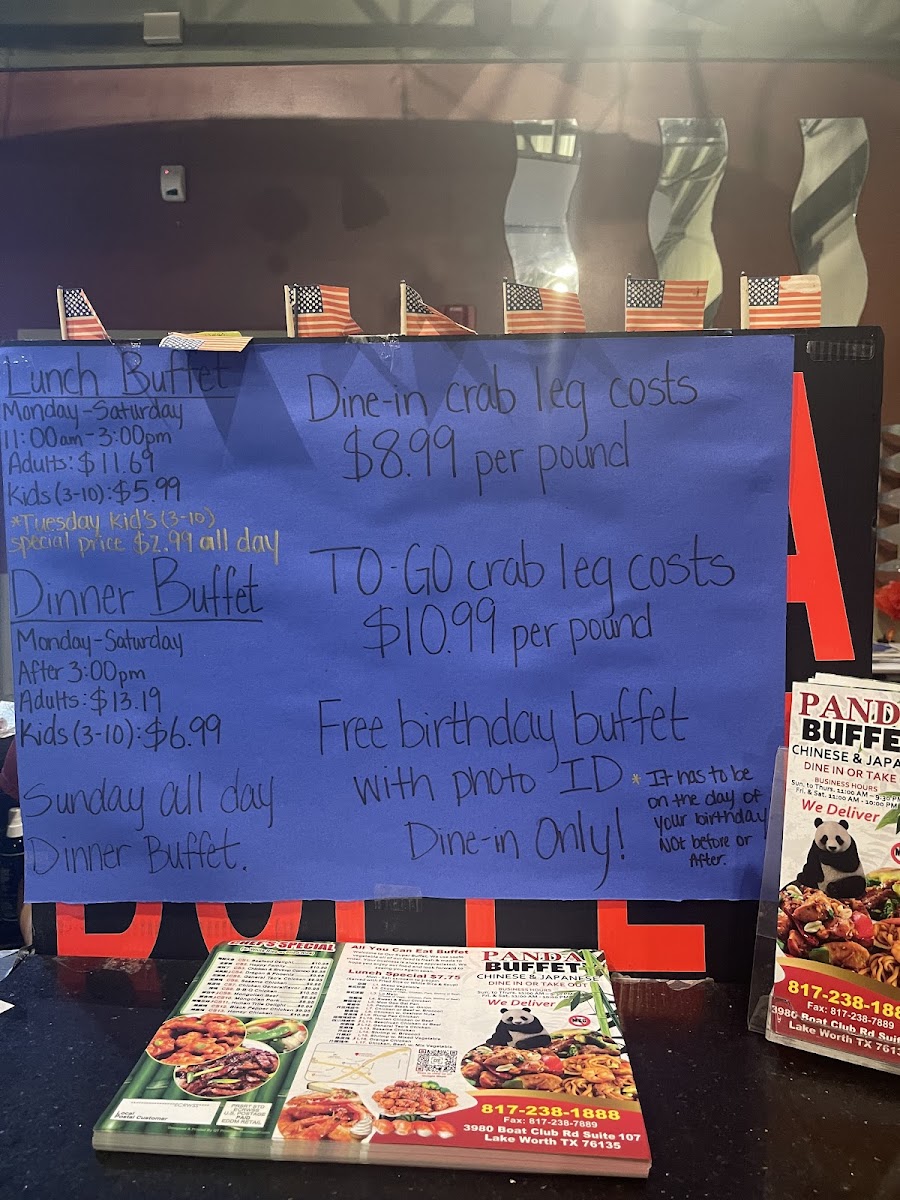 Lunch Buffet
Monday-Saturday
11:00am-3:00pm
Adults: $11.69
Kids (3-10): $5.99
*Tuesday Kid's (3-10)
special price $2.99 all day
Dinner Buffet
Monday-Saturday
After 3:00pm
Adults: $13.19
Kids (3-10): $6.99
Sunday all day
Dinner Buffet.
Dine-in crab leg costs
$8.99 per pound
TO-GO crab leg costs
$10.99 per pound
Free birthday buffet
with photo ID
Dine-in Only!
* It has to be
on the day of
your birthday
Not before or
After.
A
BUFFE
CHEF'S SPECIAL
Local
Postal Customer
PRSRT STD
ECRWSS
U.S. POSTAGE
PAID
EDDM RETAIL
All You Can Eat Buffet
Lunch Special $7.75
PANDA
BUFFET
CHINESE & JAPANESE
DINE IN OR TAKE OUT
BUSINESS HOURS
We Deliver
817-238-1888
Fax: 817-238-7889
3980 Boat Club Rd Suite 107
Lake Worth TX 76135
PAND
BUFFE
CHINESE & JAPA
DINE IN OR TAKE
BUSINESS HOURS
Sun. to Thurs. 11:00 AM - 9:30 PM
Fri. & Sat. 11:00 AM - 10:00 PM
We Deliver
817-238-188
Fax: 817-238-7889
3980 Boat Club Rd Suit
Lake Worth TX 7613